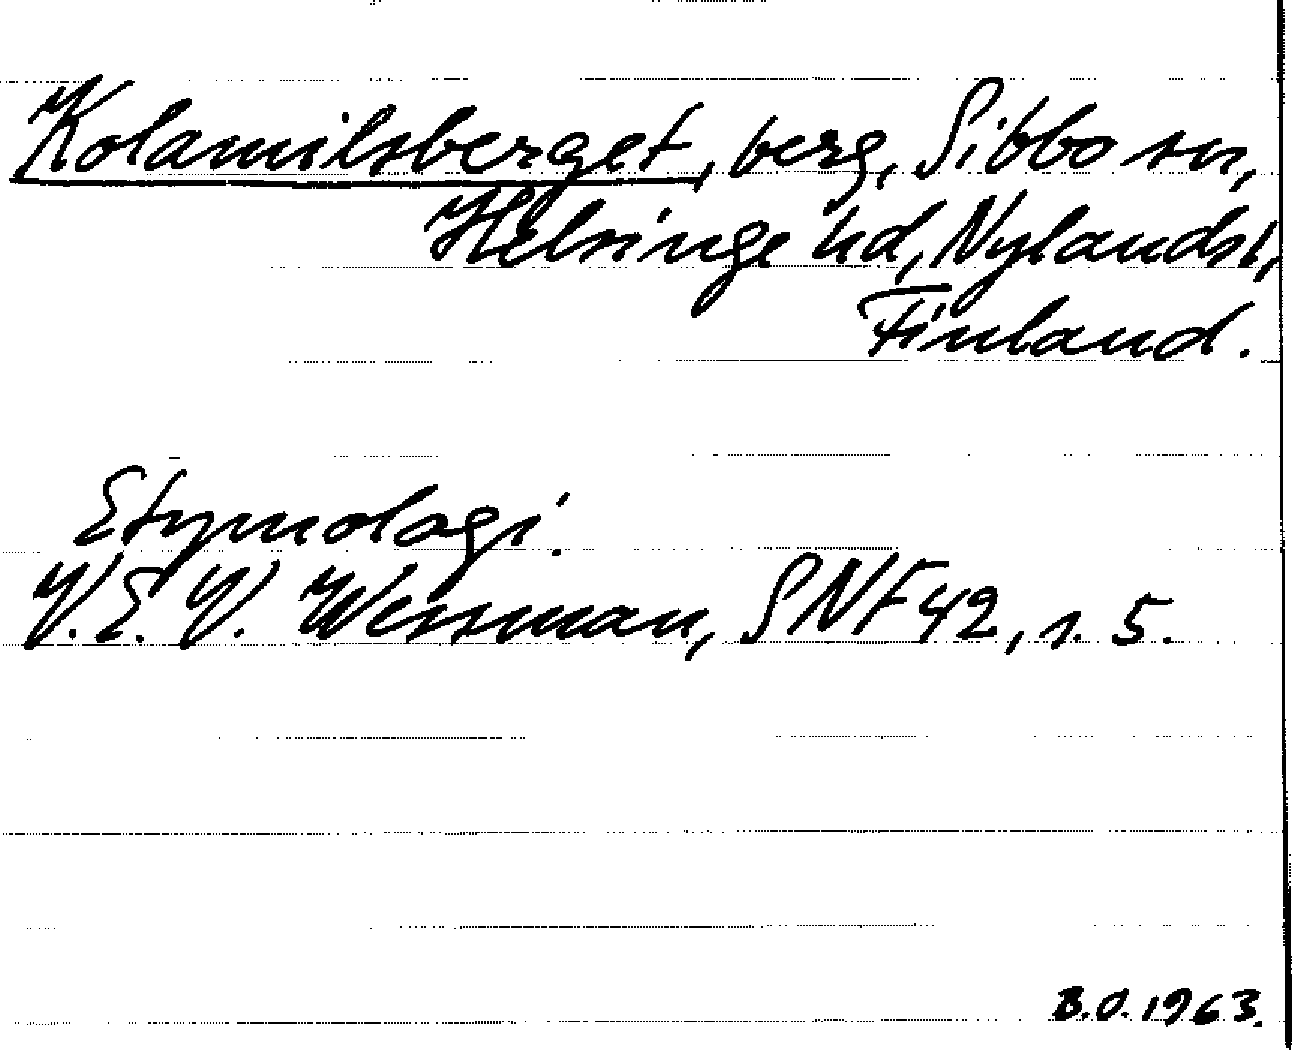 Kolamilsberget, berg, Sibbo sn,
Helsinge hd, Nylands l,
Finland.
Etymologi.
V. E. V. Wessman, SNF 42, s. 5.
B.O. 1963.